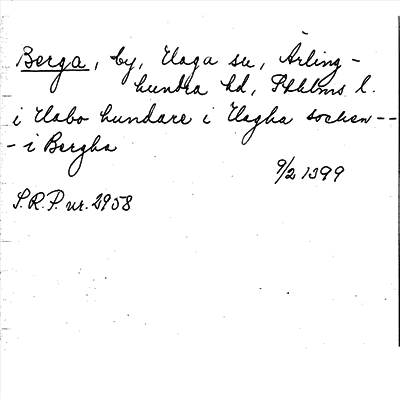 Berga, by, Haga sn, Ärling-
hundra hd, Sthlms l.
i Habo hundare i Hagha socken --
- i Bergha
9/2 1399
S.R.P. nr. 2958